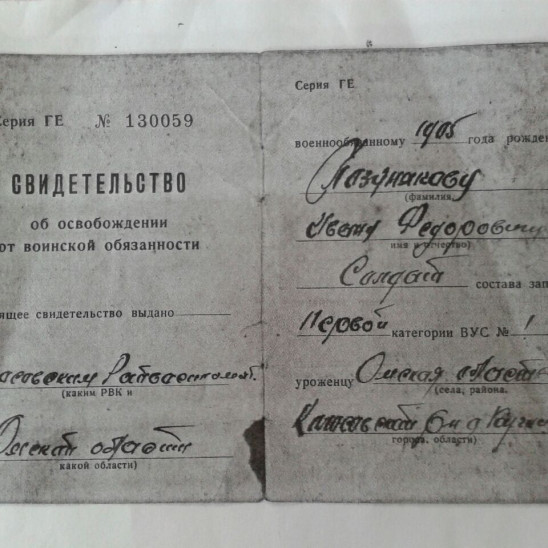 Серия ГЕ № 130059
СВИДЕТЕЛЬСТВО
об освобождении
от воинской обязанности
ящее свидетельство выдано
(каким РВК и
Омской области
какой области)
Серия ГЕ
военнообязанному 1905 года рожден
(фамилия
Ивану Федорович
имя и отчество)
Солдат состава зап
Первой категории ВУС № 1
уроженцу Омская област
(села, района,
города, области)